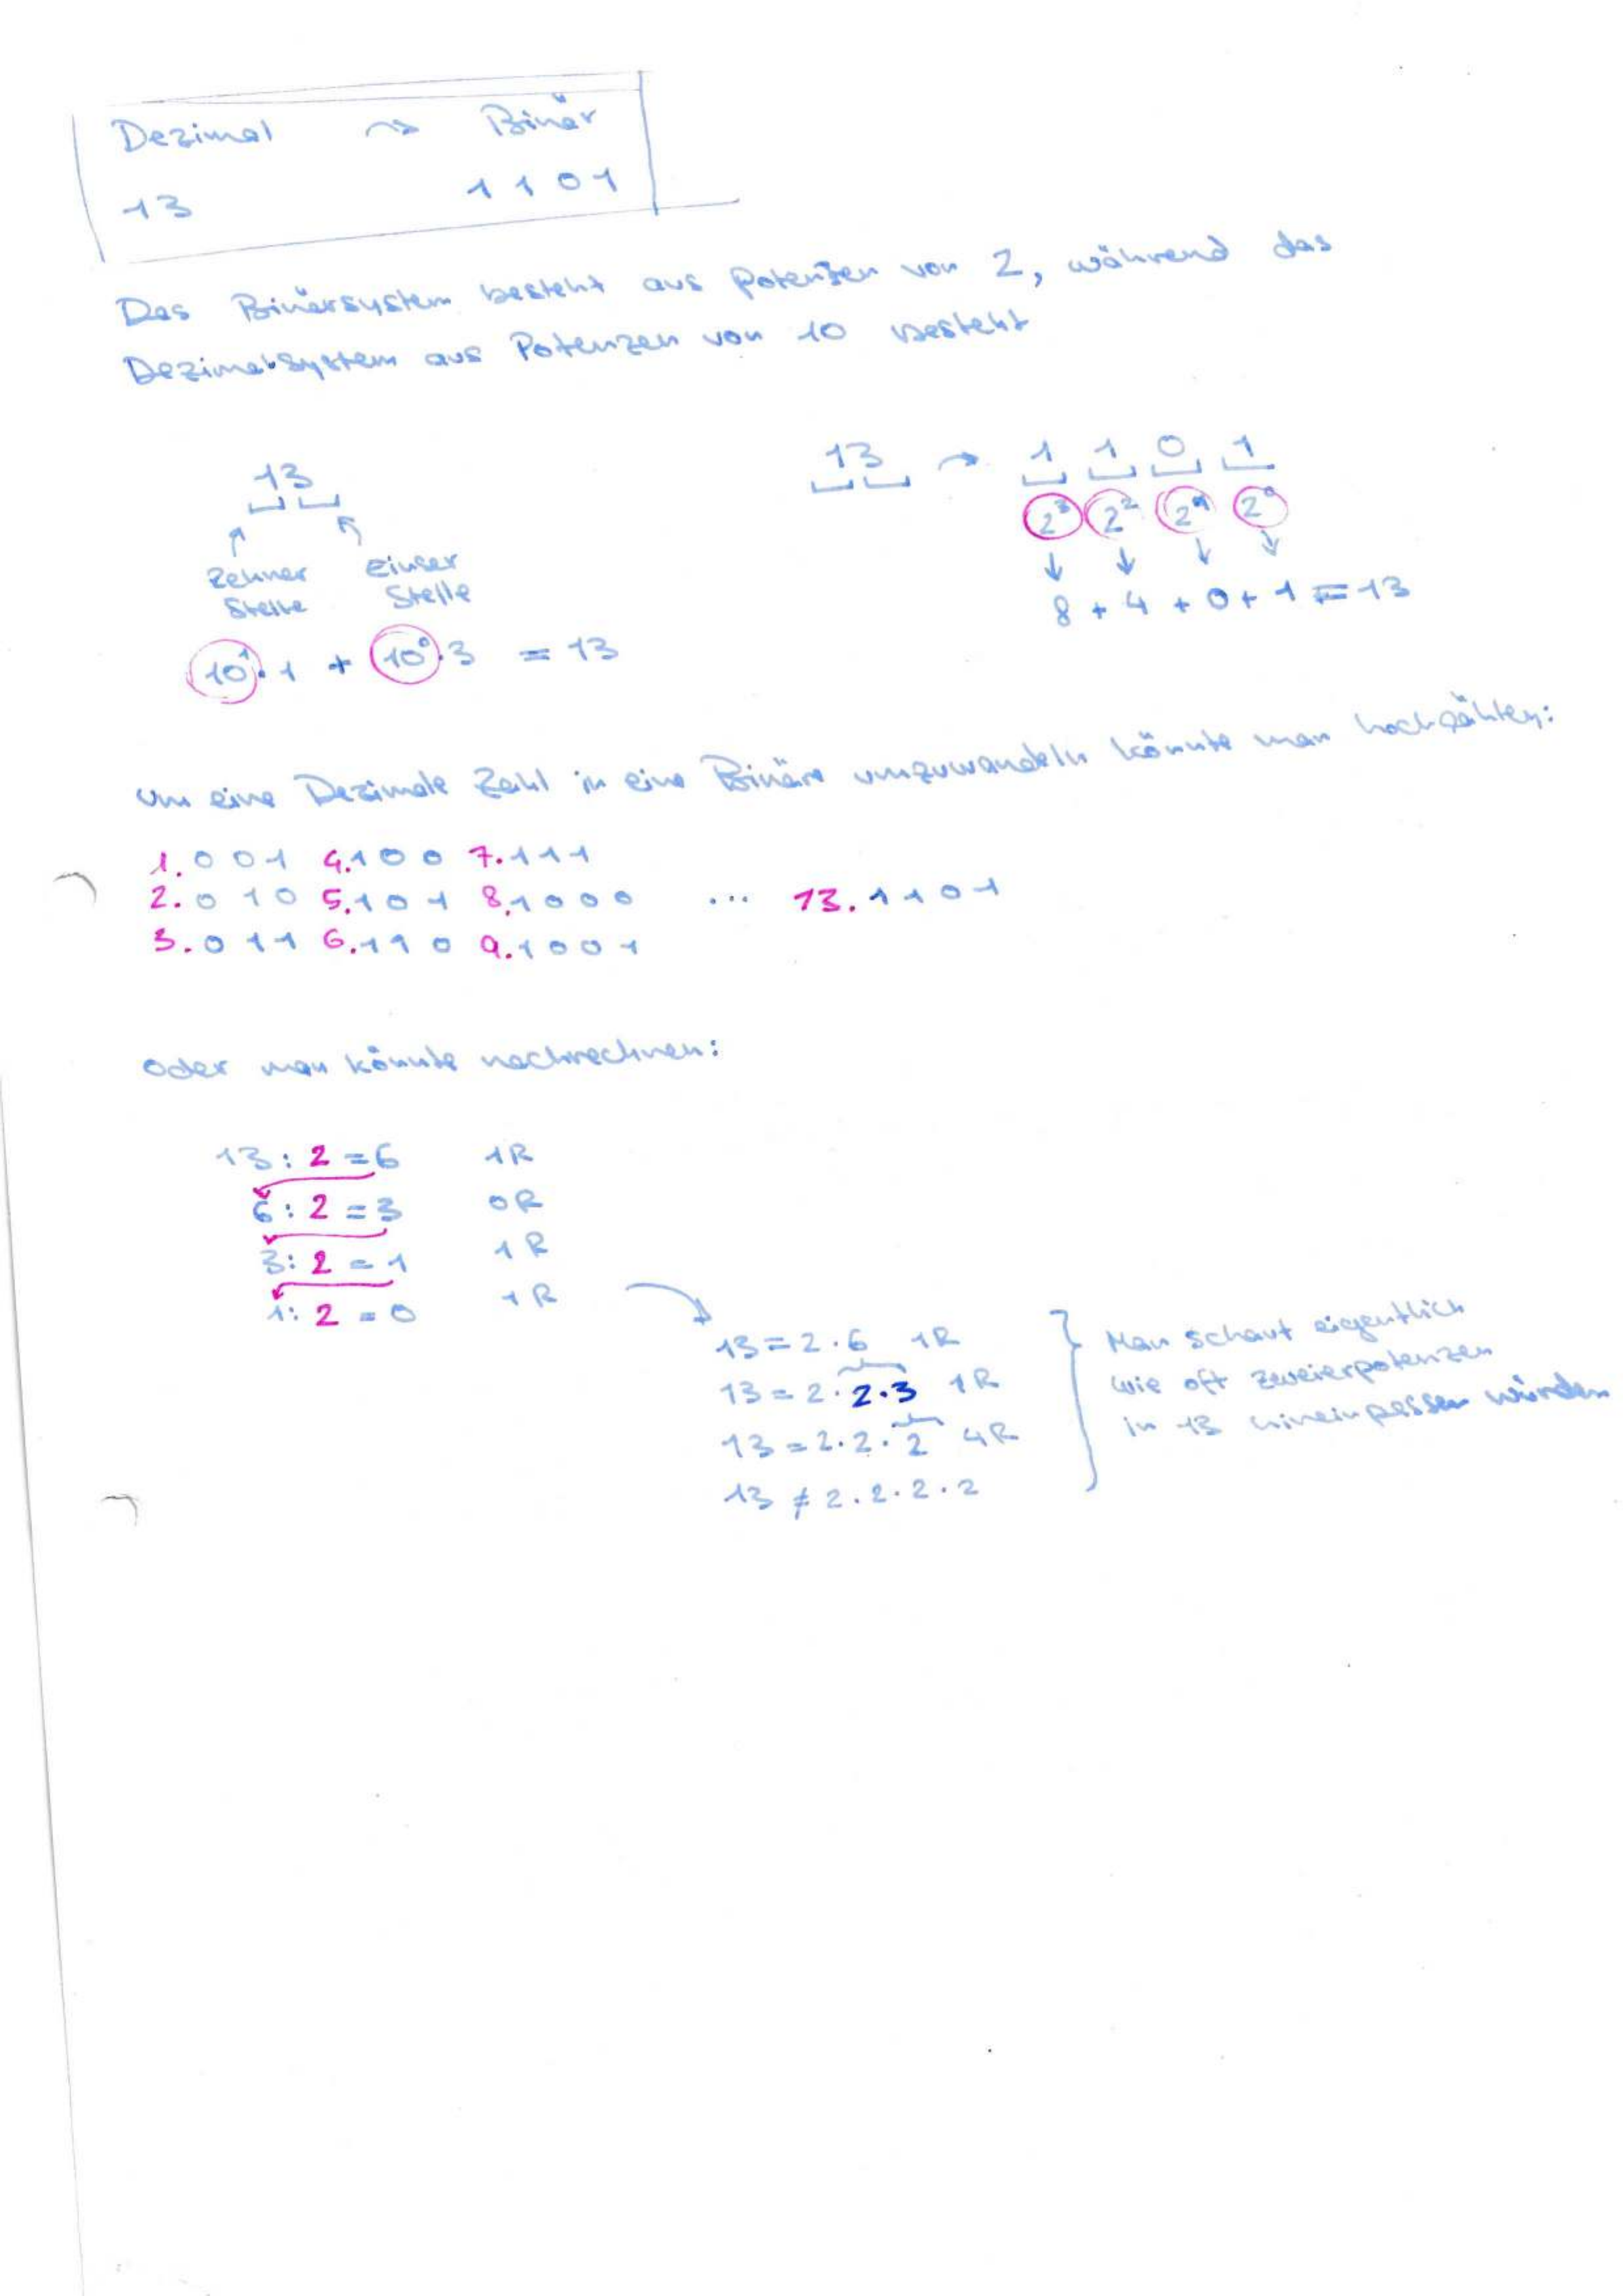 Dezimal ↝ Binär
13 1101
Das Binärsystem besteht aus Potenzen von 2, während das
Dezimalsystem aus Potenzen von 10 besteht
13
Zehner Einser
Stelle Stelle
10¹·1 + 10⁰·3 = 13
13 → 1 1 0 1
2³ 2² 2¹ 2⁰
↓ ↓ ↓ ↓
8 + 4 + 0 + 1 = 13
um eine Dezimale Zahl in eine Binäre umzuwandeln könnte man hochzählen:
1. 001 4. 100 7. 111
2. 010 5. 101 8. 1000 ... 13. 1101
3. 011 6. 110 9. 1001
oder man könnte nachrechnen:
13 : 2 = 6 1R
6 : 2 = 3 0R
3 : 2 = 1 1R
1 : 2 = 0 1R
13 = 2·6 1R
13 = 2·2·3 1R
13 = 2·2·2 4R
13 ≠ 2·2·2·2
Man schaut eigentlich
wie oft zweierpotenzen
in 13 hineinpassen würden